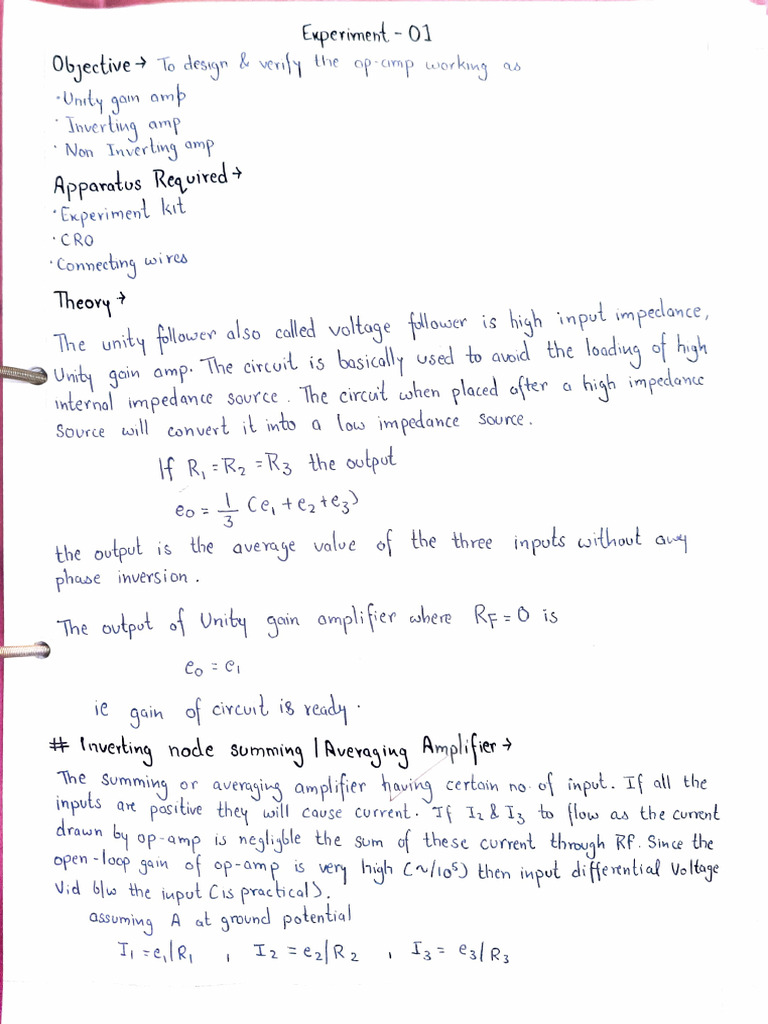 Experiment - 01
Objective → To design & verify the op-amp working as
· Unity gain amp
· Inverting amp
· Non Inverting amp
Apparatus Required →
· Experiment kit
· CRO
· Connecting wires
Theory →
The unity follower also called voltage follower is high input impedance,
Unity gain amp. The circuit is basically used to avoid the loading of high
internal impedance source. The circuit when placed after a high impedance
Source will convert it into a low impedance source.
If R₁ = R₂ = R₃ the output
e₀ = 1/3 (e₁ + e₂ + e₃)
the output is the average value of the three inputs without any
phase inversion.
The output of Unity gain amplifier where RF = 0 is
e₀ = e₁
ie gain of circuit is ready.
# Inverting node summing / Averaging Amplifier →
The summing or averaging amplifier having certain no. of input. If all the
inputs are positive they will cause current. If I₂ & I₃ to flow as the current
drawn by op-amp is negligble the sum of these current through Rf. Since the
open-loop gain of op-amp is very high (~/10⁵) then input differential Voltage
Vid b/w the input (is practical).
assuming A at ground potential
I₁ = e₁/R₁ , I₂ = e₂/R₂ , I₃ = e₃/R₃